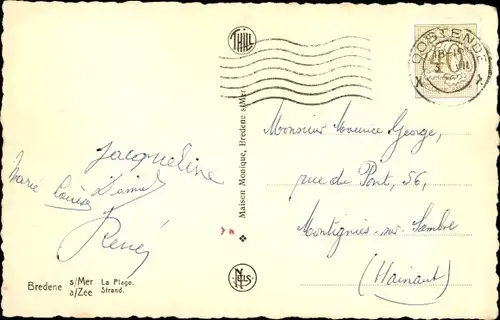 THILL
OOSTENDE
40
Jacqueline
Marie Louise
René
Bredene s/Mer La Plage.
a/Zee Strand.
Maison Monique, Bredene s/Mer
NELS
Monsieur Maurice George,
rue du Pont, 56,
Montignies-sur-Sambre
(Hainaut)